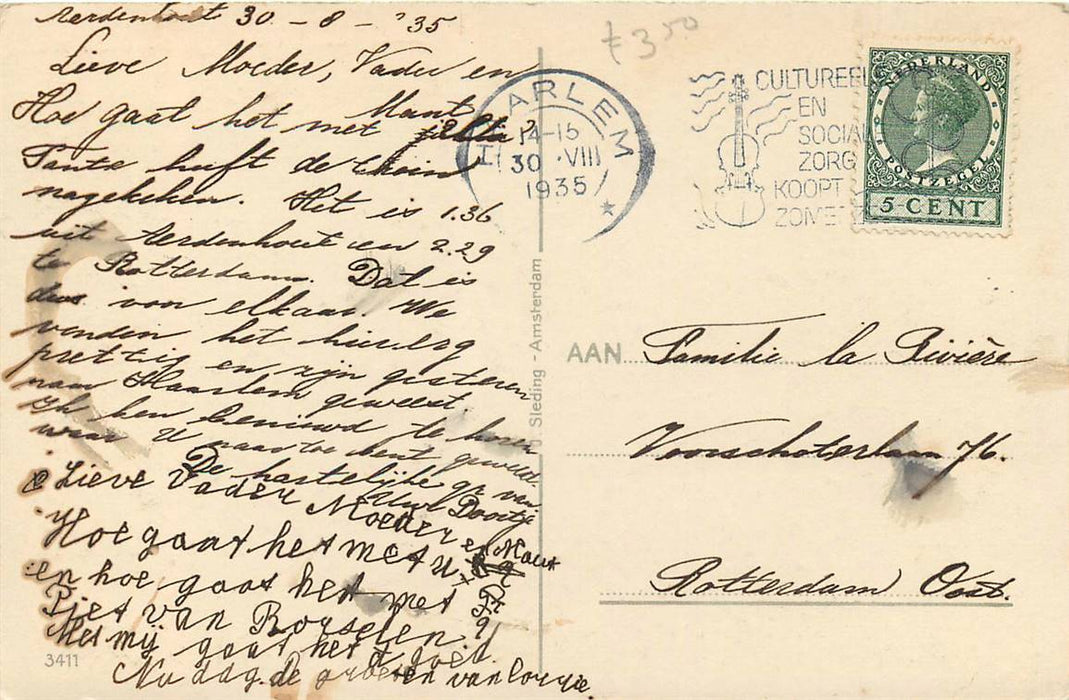 Aerdenhout 30 - 8 - '35
Lieve Moeder, Vader en
Maut
Hoe gaat het met
Tante heeft de trein
nagekeken. Het is 1.36
uit Aerdenhout en 2.29
te Rotterdam. Dat is
dus van elkaar. We
vonden het hier erg
prettig en zijn gisteren
naar Haarlem geweest.
Ik ben benieuwd te horen
waar U naar toe bent geweest.
De hartelijke gr. van
Uw Dootje
Lieve Vader Moeder en Maut
Hoe gaat het met U
en hoe gaat het met
Piet van Borselen?
Met mij gaat het goed.
Nu dag. de groeten van Corrie
3411
Sleding - Amsterdam
£ 3,50
HAARLEM
14-15
30 .VIII
1935
CULTUREEL
EN
SOCIAL
ZORG
KOOPT
ZOME
NEDERLAND
POSTZEGEL
5 CENT
AAN Familie la Rivière
Voorschoterlaan 76.
Rotterdam Oost.